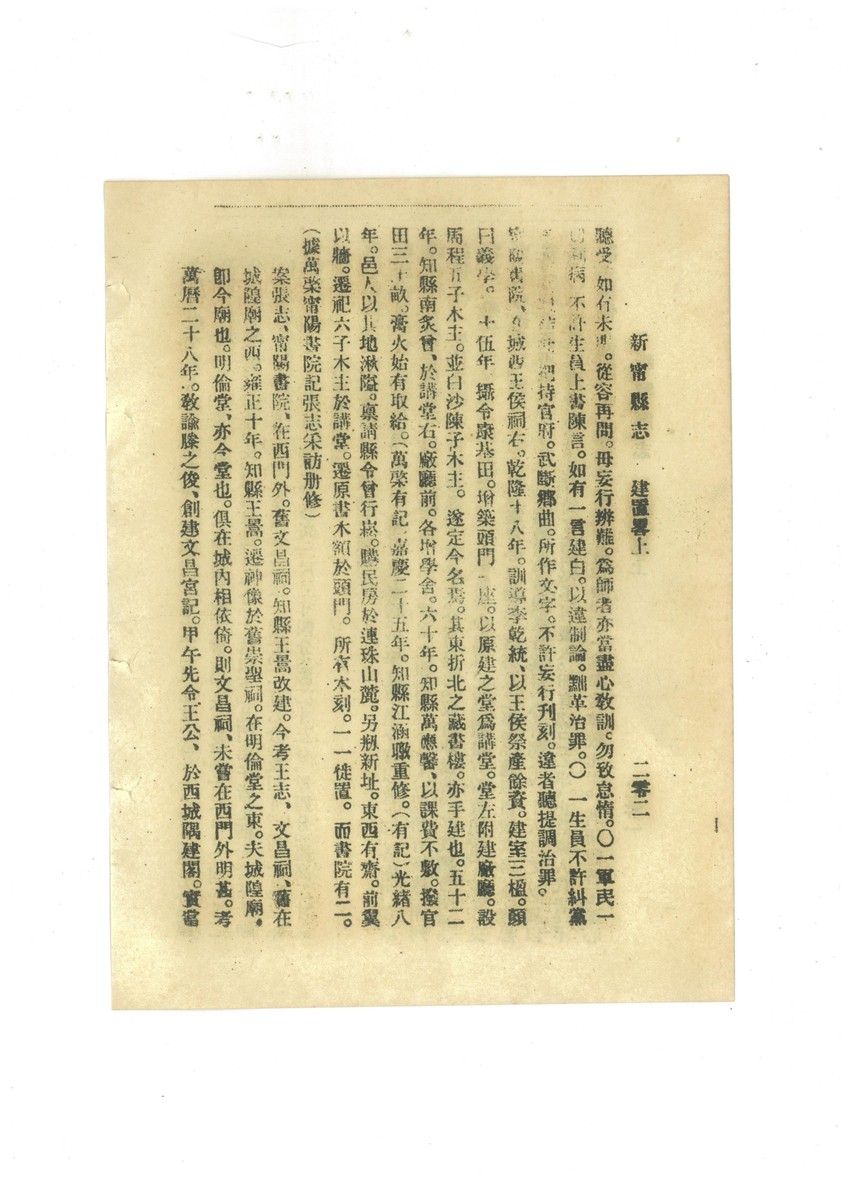 新甯縣志 建置畧上 二零二
聽受 如有未 。從容再問。毋妄行辨難。爲師者亦當盡心敎訓。勿致怠惰。〇一軍民一
病 不許生員上書陳言。如有一言建白。以違制論。黜革治罪。〇 一生員不許糾黨
把持官府。武斷鄉曲。所作文字。不許妄行刊刻。違者聽提調治罪。
書院、在城西王侯祠右。乾隆十八年。訓導李乾統、以王侯祭產餘貲。建室三楹。顏
曰義學。 十伍年 攝令康基田。增築頭門一座。以原建之堂爲講堂。堂左附建廠廳。設
周程五子木主。並白沙陳子木主。遂定今名焉。其東折北之藏書樓。亦手建也。五十二
年。知縣南炙曾、於講堂右。廠廳前。各增學舍。六十年。知縣萬應馨、以課費不敷。撥官
田三十畝。膏火始有取給。(萬棨有記 嘉慶二十五年。知縣江涵暾重修。(有記)光緒八
年。邑人以其地湫隘。稟請縣令曾行崧。購民房於連珠山麓。另刱新址。東西有齋。前翼
以牆。遷祀六子木主於講堂。遷原書木額於頭門。所有木刻。一一徙置。而書院有二。
(據萬棨甯陽書院記張志采訪册修)
案張志、甯陽書院、在西門外。舊文昌祠。知縣王暠改建。今考王志、文昌祠、舊在
城隍廟之西。雍正十年。知縣王暠。遷神像於舊崇聖祠。在明倫堂之東。夫城隍廟。
卽今廟也。明倫堂、亦今堂也。俱在城內相依倚。則文昌祠、未嘗在西門外明甚。考
萬曆二十八年。敎諭滕之俊、創建文昌宮記。甲午先令王公、於西城隅建閣。實當